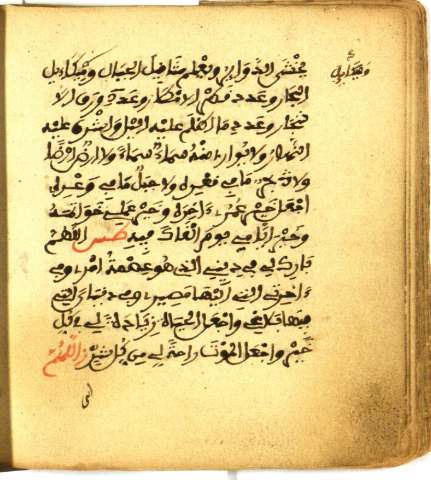 يخشى الدوائر ويعلم مثاقيل الجبال ومكاءيل
البحار وعدد قطر الامطار وعدد ورق الا
شجار وعدد ما اظلم عليه اليل واشرق عليه
النهار ولا تواري منه سماء سماء ولا ارض ارضا
ولا بحر ما في قعره ولا جبل ما في وعره
اجعل خير عمري ءاخره وخير عملي خواتمه
وخير ايامي يوم القاك فيه اللهم
بارك لي في ديني الذي هو عصمة امري وفي
ءاخرتي التي اليها مصيري وفي دنياي التي
فيها بلاغي واجعل الحياة زيادة لي في كل
خير واجعل الموت راحة لي من كل شر اللهم